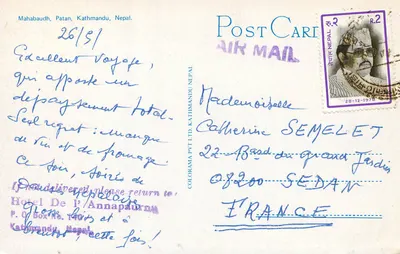 Mahabaudh, Patan, Kathmandu, Nepal.
POST CARD
AIR MAIL
26/9/
Excellent voyage,
qui apporte un
dépaysement total-
Seul regret: manque
de vin et de fromage
Ce soir, soirée de
Danse népalaise
Gros bisous et à
bientôt, cette fois!
If undelivered please return to:
Hotel De l'Annapurna
P. O. Box No.
Kathmandu, Nepal
COLORAMA PVT LTD. KATHMANDU NEPAL
२ R.2
Mademoiselle
Catherine SEMELET
22 Bard du grand Jardin
08200 SEDAN
FRANCE